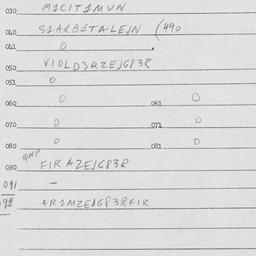 030 M1CIT1MUN
040 S1ARB1TALEJN (490
041 0
050 VIDLD3RZEJG83R
051 0
0 061 0
070 0 071 0
080 0 081 0
QNP
090 FIRAZEJG83R
091 –
92 AR1MZEJG83RFIR